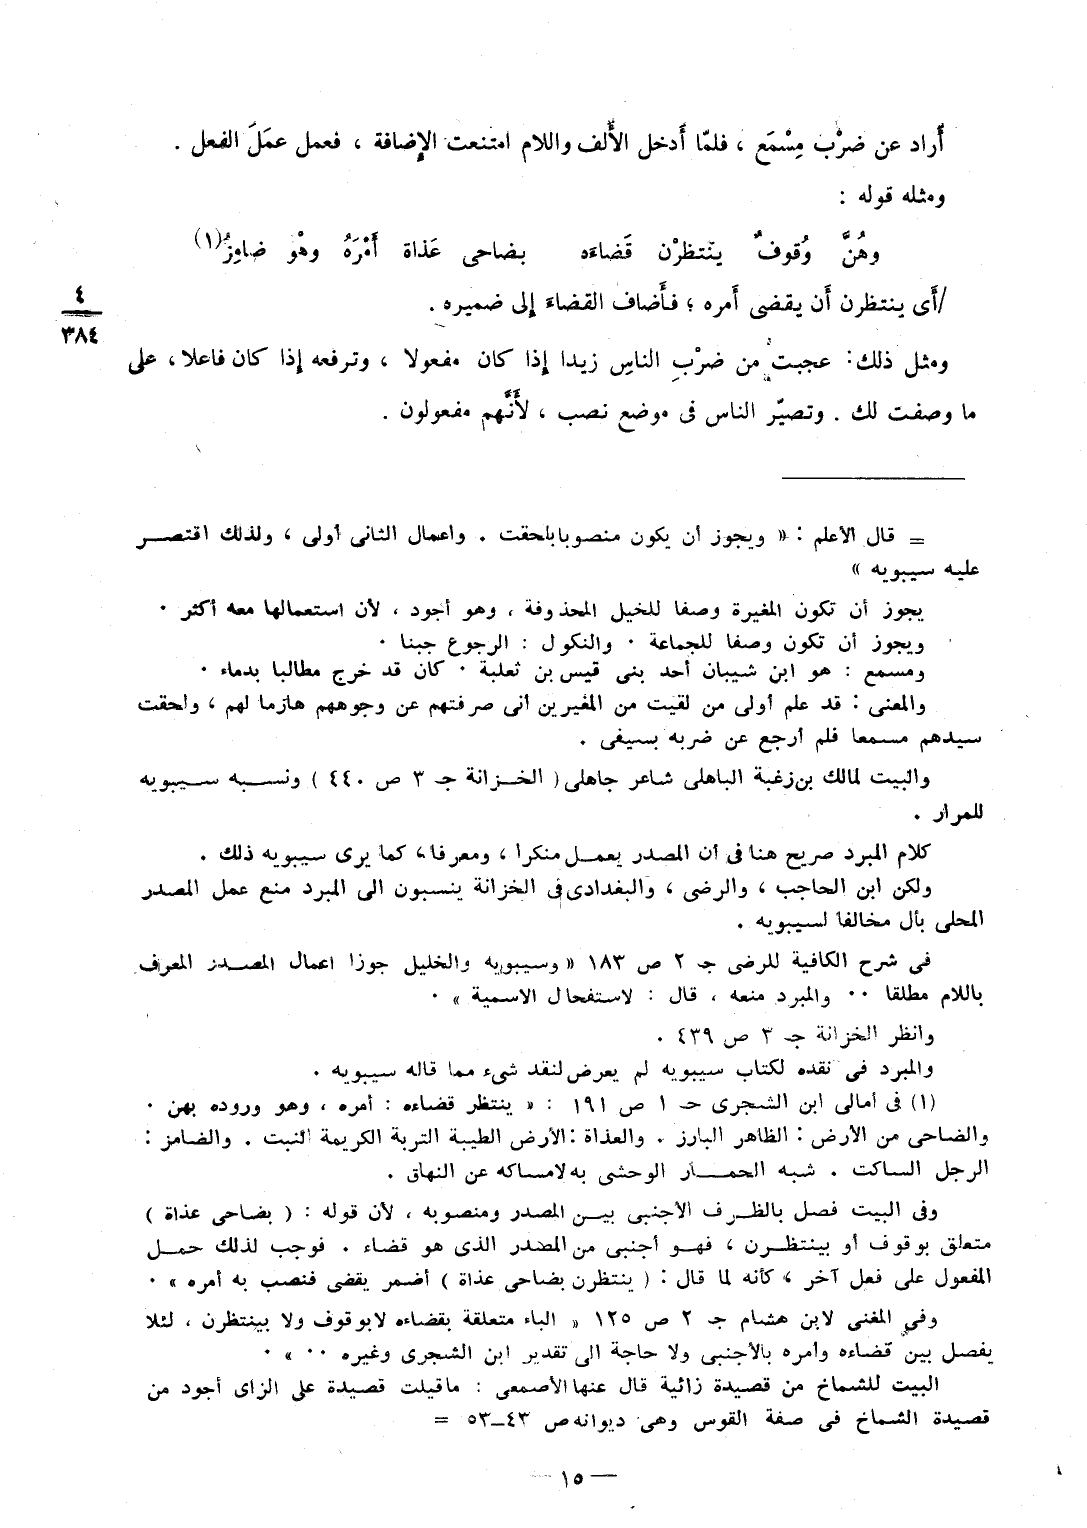 أراد عن ضرْب مِسْمَع ، فلمّا أَدخل الأَلف واللام امتنعت الإِضافة ، فعمل عمَلَ الفعل .
ومثله قوله :
وهُنَّ وُقوفٌ ينتظرْن قَضاءَه بضاحى عَذاة أَمْرَهُ وهْو ضامِزُ(١)
/أَى ينتظرن أَن يقضى أَمره ؛ فأَضاف القضاءَ إلى ضميره .
٤
٣٨٤
ومثل ذلك: عجبت من ضرْبِ الناسِ زيدا إذا كان مفعولا ، وترفعه إذا كان فاعلا ، على
ما وصفت لك . وتصيّر الناس فى موضع نصب ، لأَنَّهم مفعولون .
= قال الأعلم : « ويجوز أن يكون منصوبا بلحقت . واعمال الثانى أولى ، ولذلك اقتصر
عليه سيبويه »
يجوز أن تكون المغيرة وصفا للخيل المحذوفة ، وهو أجود ، لأن استعمالها معه أكثر .
ويجوز أن تكون وصفا للجماعة . والنكول : الرجوع جبنا .
ومسمع : هو ابن شيبان أحد بنى قيس بن ثعلبة . كان قد خرج مطالبا بدماء .
والمعنى : قد علم أولى من لقيت من المغيرين أنى صرفتهم عن وجوههم هازما لهم ، ولحقت
سيدهم مسمعا فلم أرجع عن ضربه بسيفى .
والبيت لمالك بن زغبة الباهلى شاعر جاهلى ( الخزانة جـ ٣ ص ٤٤٠ ) ونسبه سيبويه
للمرار .
كلام المبرد صريح هنا فى أن المصدر يعمل منكرا ، ومعرفا، كما يرى سيبويه ذلك .
ولكن ابن الحاجب ، والرضى ، والبغدادى فى الخزانة ينسبون الى المبرد منع عمل المصدر
المحلى بأل مخالفا لسيبويه .
فى شرح الكافية للرضى جـ ٢ ص ١٨٣ « وسيبويه والخليل جوزا اعمال المصدر المعرف
باللام مطلقا .. والمبرد منعه ، قال : لاستفحال الاسمية » .
وانظر الخزانة جـ ٣ ص ٤٣٩ .
والمبرد فى نقده لكتاب سيبويه لم يعرض لنقد شىء مما قاله سيبويه .
(١) فى أمالى ابن الشجرى جـ ١ ص ١٩١ : « ينتظر قضاءه : أمره ، وهو وروده بهن .
والضاحى من الأرض : الظاهر البارز . والعذاة : الأرض الطيبة التربة الكريمة النبت . والضامز :
الرجل الساكت . شبه الحمار الوحشى به لامساكه عن النهاق .
وفى البيت فصل بالظرف الأجنبى بين المصدر ومنصوبه ، لأن قوله : ( بضاحى عذاة )
متعلق بوقوف أو بينتظرن ، فهو أجنبى من المصدر الذى هو قضاء . فوجب لذلك حمل
المفعول على فعل آخر ، كأنه لما قال : ( ينتظرن بضاحى عذاة ) أضمر يقضى فنصب به أمره » .
وفى المغنى لابن هشام جـ ٢ ص ١٢٥ « الباء متعلقة بقضاءه لا بوقوف ولا بينتظرن ، لئلا
يفصل بين قضاءه وأمره بالأجنبى ولا حاجة الى تقدير ابن الشجرى وغيره .. » .
البيت للشماخ من قصيدة زائية قال عنها الأصمعى : ما قيلت قصيدة على الزاى أجود من
قصيدة الشماخ فى صفة القوس وهى ديوانه ص ٤٣ــ٥٣ =
— ١٥ —